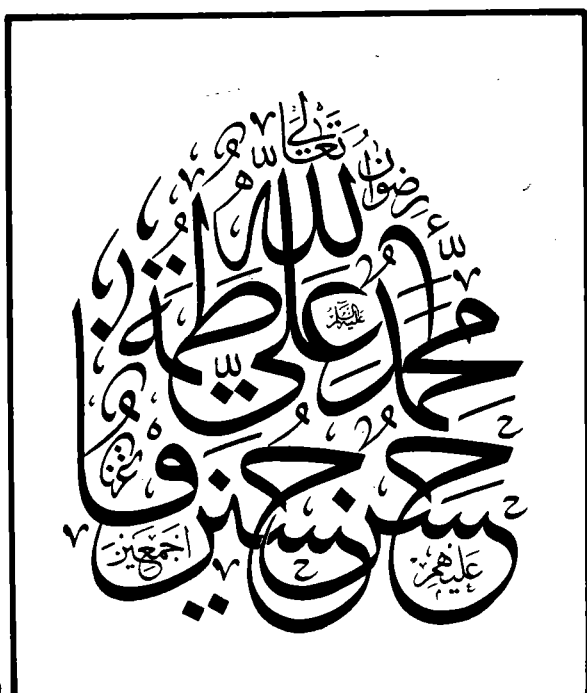 الله
محمد علي فاطمة
حسن حسين
رضوان الله تعالى عليهم اجمعين
عليه السلام